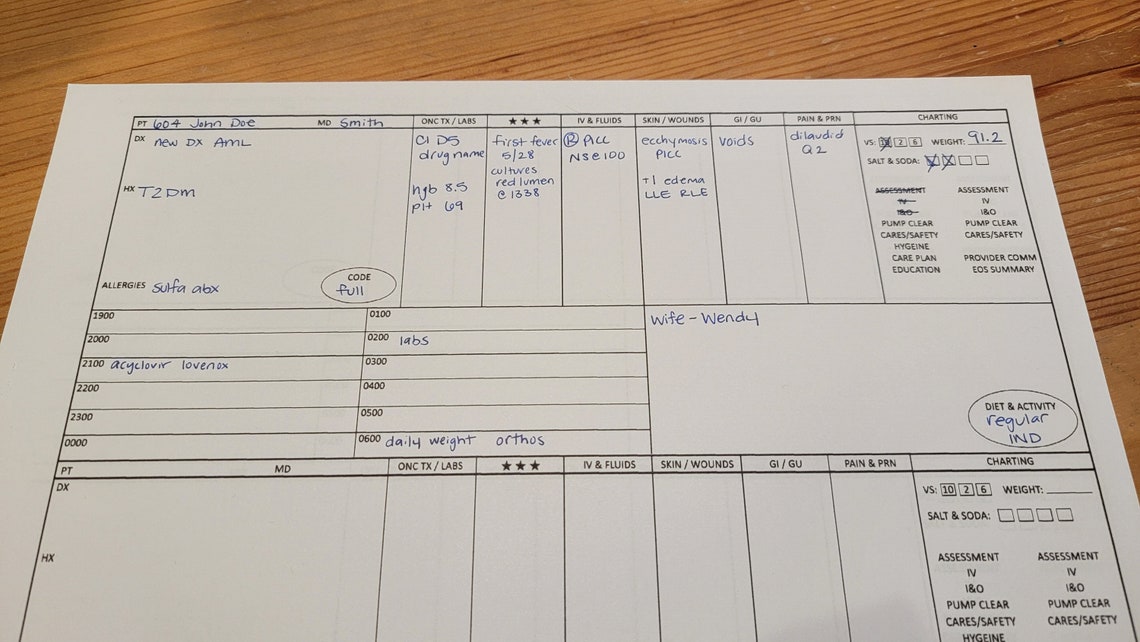 PT 604 John Doe MD Smith
ONC TX / LABS
★★★
IV & FLUIDS
SKIN / WOUNDS
GI / GU
PAIN & PRN
CHARTING
DX new DX AML
HX T2DM
ALLERGIES sulfa abx
CODE
full
C1 D5
drug name
hgb 8.5
plt 69
first fever
5/28
cultures
red lumen
@ 1338
Ⓡ PICC
NS @ 100
ecchymosis
PICC
+1 edema
LLE RLE
voids
dilaudid
Q2
VS: 10 2 6 WEIGHT: 91.2
SALT & SODA:
ASSESSMENT ASSESSMENT
IV IV
I&O I&O
PUMP CLEAR PUMP CLEAR
CARES/SAFETY CARES/SAFETY
HYGEINE
CARE PLAN PROVIDER COMM
EDUCATION EOS SUMMARY
1900
2000
2100 acyclovir lovenox
2200
2300
0000
0100
0200 labs
0300
0400
0500
0600 daily weight orthos
wife - Wendy
DIET & ACTIVITY
regular
IND
PT MD
ONC TX / LABS
★★★
IV & FLUIDS
SKIN / WOUNDS
GI / GU
PAIN & PRN
CHARTING
DX
HX
VS: 10 2 6 WEIGHT:
SALT & SODA:
ASSESSMENT ASSESSMENT
IV IV
I&O I&O
PUMP CLEAR PUMP CLEAR
CARES/SAFETY CARES/SAFETY
HYGEINE